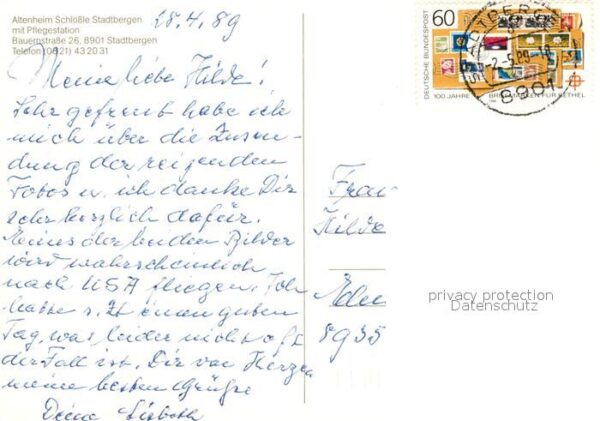 Altenheim Schlößle Stadtbergen
mit Pflegestation
Bauernstraße 26, 8901 Stadtbergen
Telefon (0821) 43 20 31
28.4.89
Meine liebe Hilde!
Sehr gefreut habe ich
mich über die Zusen-
dung der reizenden
Fotos u. ich danke Dir
sehr herzlich dafür.
Eines der beiden Bilder
wird wahrscheinlich
nach USA fliegen. Ich
hatte z. Zt einen guten
Tag, was leider nicht oft
der Fall ist. Dir von Herzen
meine besten Grüße
Deine
DEUTSCHE BUNDESPOST
60
100 JAHRE BRIEFMARKEN FÜR BETHEL
STADTBERGEN
-2.5.89-18
8901
Frau
Hilde
8935
privacy protection
Datenschutz